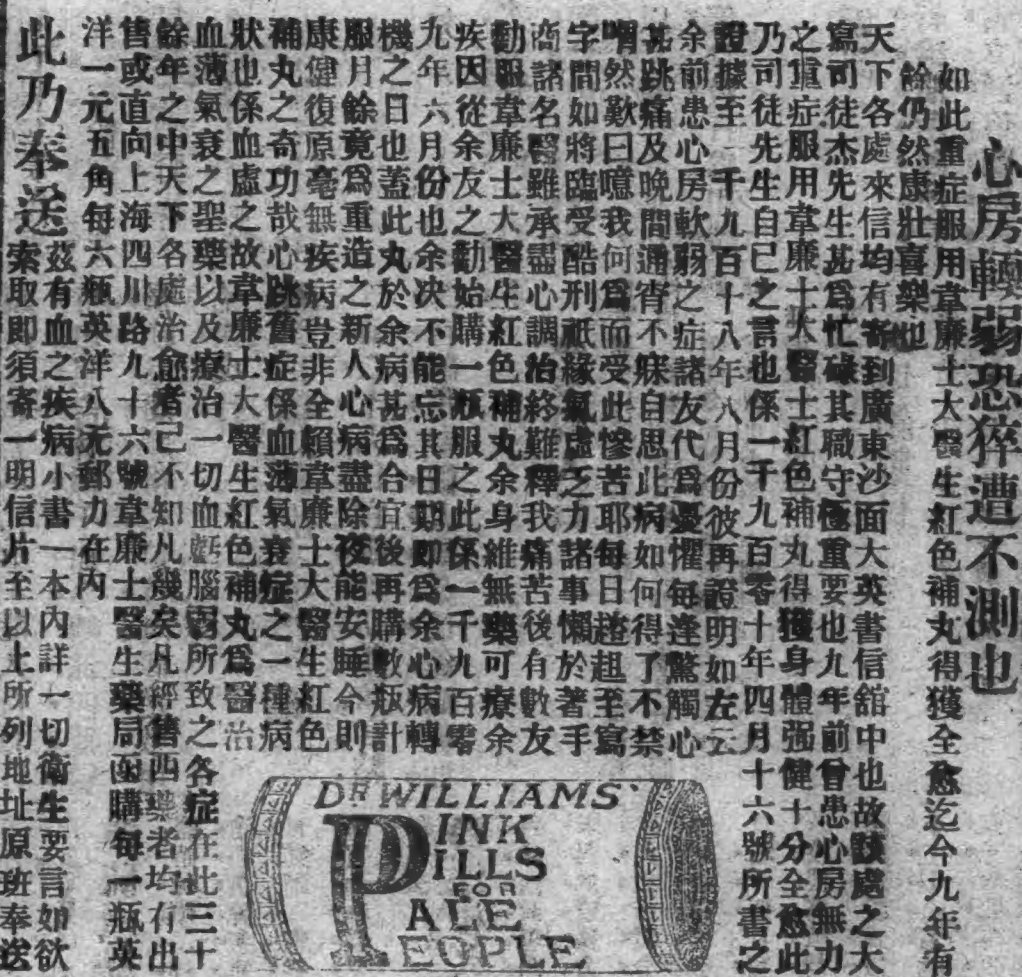 心房輭弱恐猝遭不測也
如此重症服用韋廉士大醫生紅色補丸得獲全愈迄今九年有
餘仍然康壯喜樂也
天下各處來信均有寄到廣東沙面大英書信舘中也故該處之大
寫司徒杰先生甚爲忙碌其職守極重要也九年前曾患心房無力
之重症服用韋廉士大醫士紅色補丸得獲身體强健十分全愈此
乃司徒先生自己之言也係一千九百零十年四月十六號所書之
證據至一千九百十八年八月份彼再證明如左云
余前患心房軟弱之症諸友代爲憂懼每逢驚觸心
甚跳痛及晚間通宵不寐自思此病如何得了不禁
喟然歎曰噫我何爲而受此慘苦耶每日趦趄至寫
字間如將臨受酷刑祇緣氣虛乏力諸事懶於著手
商諸名醫雖承盡心調治終難釋我痛苦後有數友
勸服韋廉士大醫生紅色補丸余身維無藥可療余
疾因從余友之勸始購一瓶服之此係一千九百零
九年六月份也余决不能忘其日期即爲余心病轉
機之日也蓋此丸於余病甚爲合宜後再購數瓶計
服月餘竟爲重造之新人心病盡除夜能安睡今則
康健復原毫無疾病豈非全賴韋廉士大醫生紅色
補丸之奇功哉心跳舊症係血薄氣衰症之一種病
狀也係血虛之故韋廉士大醫生紅色補丸爲醫治
血薄氣衰之聖藥以及療治一切血虧腦弱所致之各症在此三十
餘年之中天下各處治愈者已不知凡幾矣凡經售西藥者均有出
售或直向上海四川路九十六號韋廉士醫生藥局函購每一瓶英
洋一元五角每六瓶英洋八元郵力在內
此乃奉送
茲有血之疾病小書一本內詳一切衛生要言如欲
索取即須寄一明信片至以上所列地址原班奉送
DR WILLIAMS'
PINK
PILLS
FOR
PALE
PEOPLE